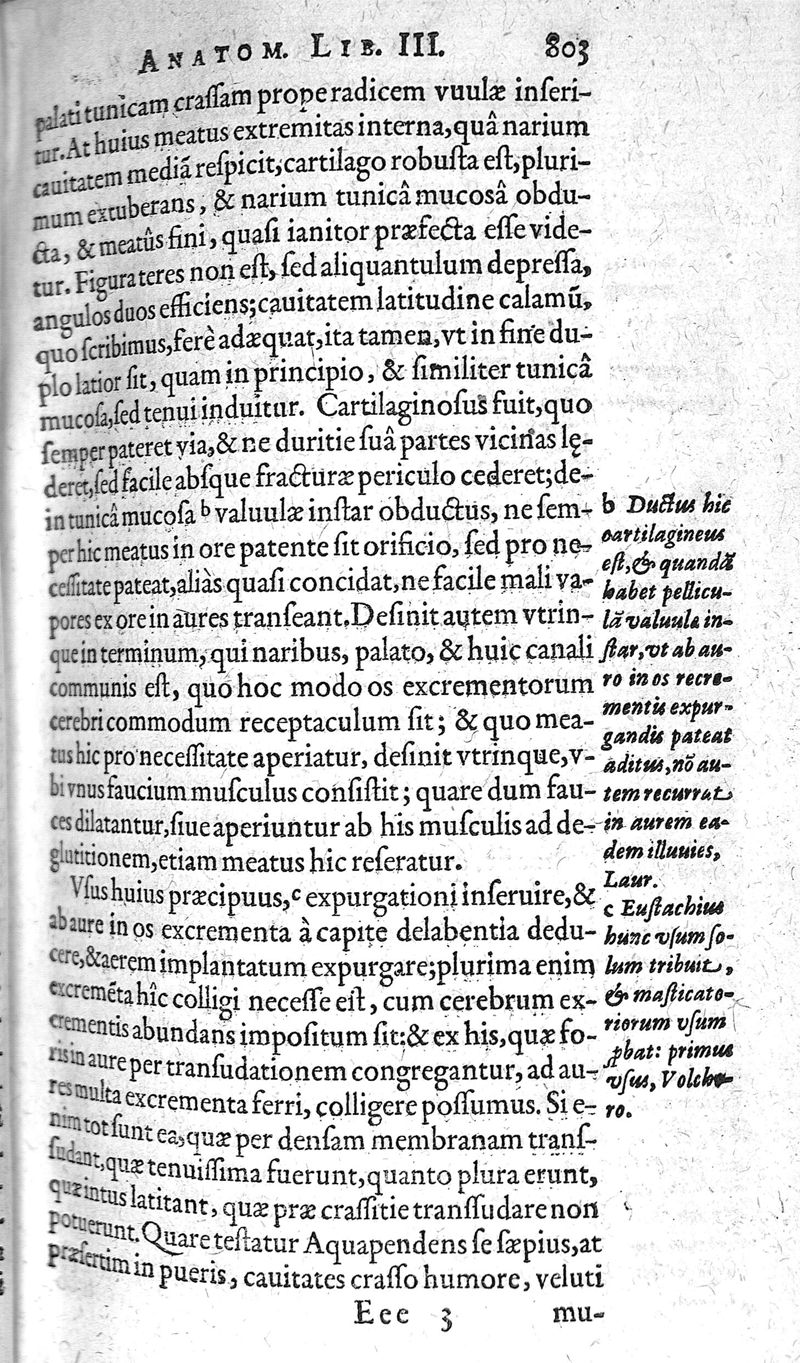 ANATOM. LIB. III. 803
palati tunicam crassam prope radicem vuulæ inseri-
tur. At huius meatus extremitas interna, quâ narium
cauitatem mediā respicit, cartilago robusta est, pluri-
mum extuberans, & narium tunicâ mucosâ obdu-
cta, & meatûs fini, quasi ianitor præfecta esse vide-
tur. Figura teres non est, sed aliquantulum depressa,
angulos duos efficiens; cauitatem latitudine calamū,
quo scribimus, ferè adæquat, ita tamen, vt in fine du-
plo latior sit, quam in principio, & similiter tunicâ
mucosa, sed tenui induitur. Cartilaginosus fuit, quo
semper pateret via, & ne duritie suâ partes vicinas lę-
deret, sed facile absque fracturæ periculo cederet; de-
in tunicâ mucosa b valuulæ instar obductus, ne sem-
per hic meatus in ore patente sit orificio, sed pro ne-
cessitate pateat, aliàs quasi concidat, ne facile mali va-
pores ex ore in aures transeant. Desinit autem vtrin-
que in terminum, qui naribus, palato, & huic canali
communis est, quo hoc modo os excrementorum
cerebri commodum receptaculum sit; & quo mea-
tus hic pro necessitate aperiatur, desinit vtrinque, v-
bi vnus faucium musculus consistit; quare dum fau-
ces dilatantur, siue aperiuntur ab his musculis ad de-
glutitionem, etiam meatus hic reseratur.
Vsus huius præcipuus, c expurgationi inseruire, &
ab aure in os excrementa à capite delabentia dedu-
cere, & aerem implantatum expurgare; plurima enim
excremēta hîc colligi necesse est, cum cerebrum ex-
crementis abundans impositum sit: & ex his, quæ fo-
ris in aure per transudationem congregantur, ad au-
res multa excrementa ferri, colligere possumus. Si e-
nim tot sunt ea, quæ per densam membranam trans-
sudant, quæ tenuissima fuerunt, quanto plura erunt,
quæ intus latitant, quæ præ crassitie transsudare non
potuerunt. Quare testatur Aquapendens se sæpius, at
præsertim in pueris, cauitates crasso humore, veluti
Eee 3 mu-
b Ductus hic
cartilagineus
est, & quandā
habet pellicu-
lā valuulæ in-
star, vt ab au-
re in os recre-
mentis expur-
gandis pateat
aditus, nō au-
tem recurrat
in aurem ea-
dem illuuies,
Laur.
c Eustachius
hunc vsum so-
lum tribuit,
& masticato-
riorum vsum
ꝓbat: primus
vsus, Volche-
ro.